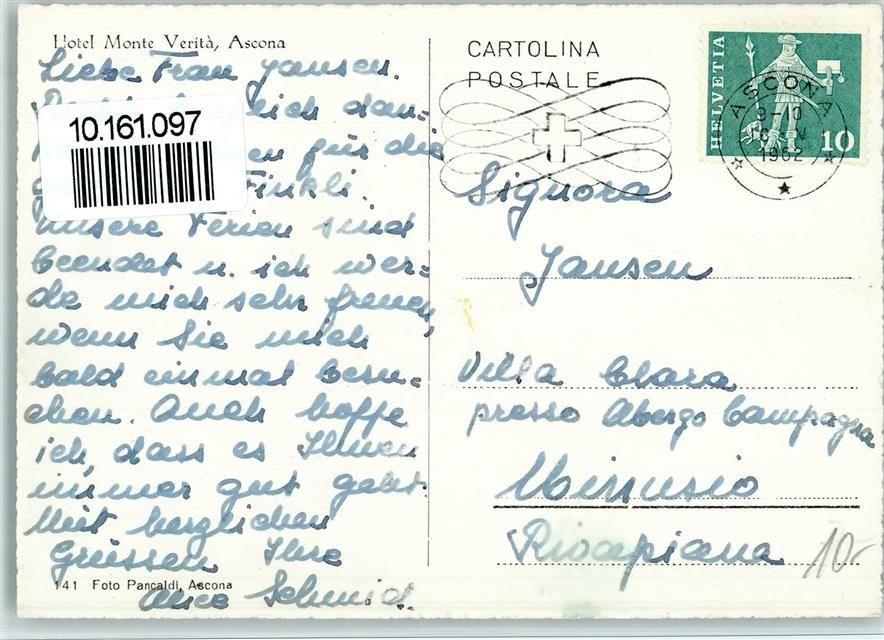 Hotel Monte Verità, Ascona
Liebe Frau Jansen.
ich dan=
für die
Finkli.
unsere Ferien sind
beendet u. ich wer=
de mich sehr freuen,
wenn Sie mich
bald einmal besu=
chen. Auch hoffe
ich, dass es Ihnen
immer gut geht.
Mit herzlichen
Grüssen Ihre
Alice Schmid.
141 Foto Pancaldi, Ascona
10.161.097
CARTOLINA
POSTALE
HELVETIA
10
ASCONA
9-10
1962
Signora
Jansen
Villa Clara
presso Abergo Campagna
Minusio
Rivapiana
10-